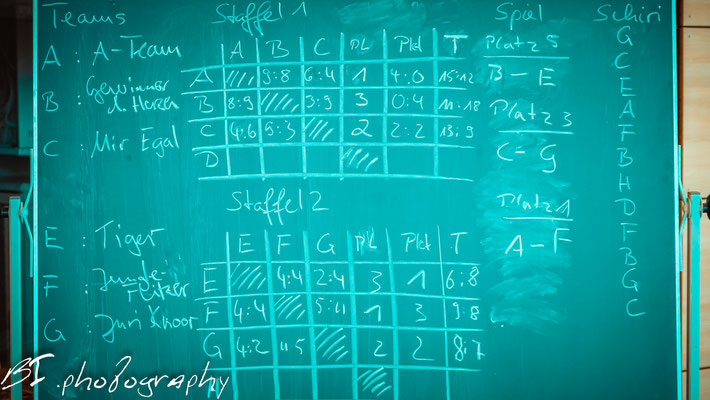 Teams Staffel 1 Spiel Schiri
A : A-Team
B : Gewinner d. Herzen
C : Mir Egal
A B C PL Pkt T
A 9:8 6:4 1 4:0 15:12
B 8:9 3:9 3 0:4 11:18
C 4:6 9:3 2 2:2 13:9
D
Platz 5
B - E
Platz 3
C - G
Platz 1
A - F
G
C
E
A
F
B
H
D
F
B
G
C
Staffel 2
E : Tiger
F : Junge-Flitzer
G : Juri Knoor
E F G PL Pkt T
E 4:4 2:4 3 1 6:8
F 4:4 5:4 1 3 9:8
G 4:2 4:5 2 2 8:7
BI.photography